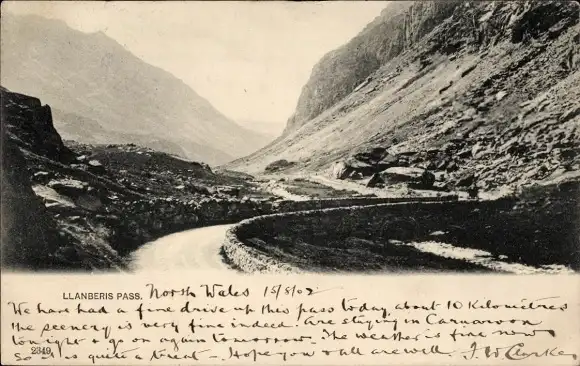 LLANBERIS PASS. North Wales 15/8/02
We have had a fine drive up this pass today, about 10 Kilometres
the scenery is very fine indeed. Are staying in Carnarvon
tonight & go on again tomorrow. The weather is fine now
So it is quite a treat - Hope you & all are well. J. W. Clarke
2349